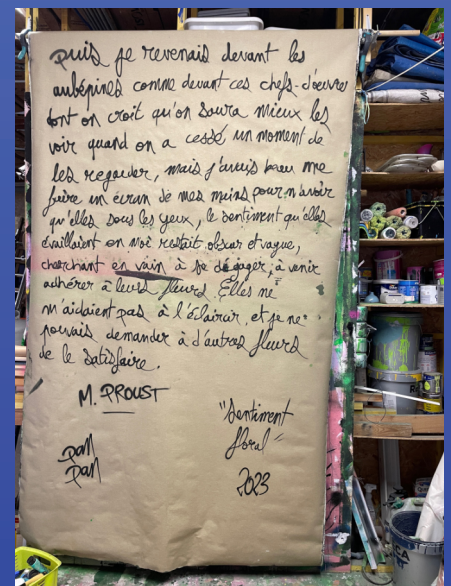 Puis je revenais devant les
aubépines comme devant ces chefs-d'oeuvre
dont on croit qu'on saura mieux les
voir quand on a cessé un moment de
les regarder, mais j'avais beau me
faire un écran de mes mains pour n'avoir
qu'elles sous les yeux, le sentiment qu'elles
éveillaient en moi restait obscur et vague,
cherchant en vain à se dégager, à venir
adhérer à leurs fleurs. Elles ne
m'aidaient pas à l'éclaircir, et je ne
pouvais demander à d'autres fleurs
de le satisfaire.
M. PROUST
"Sentiment
floral"
Pan
Pan
2023